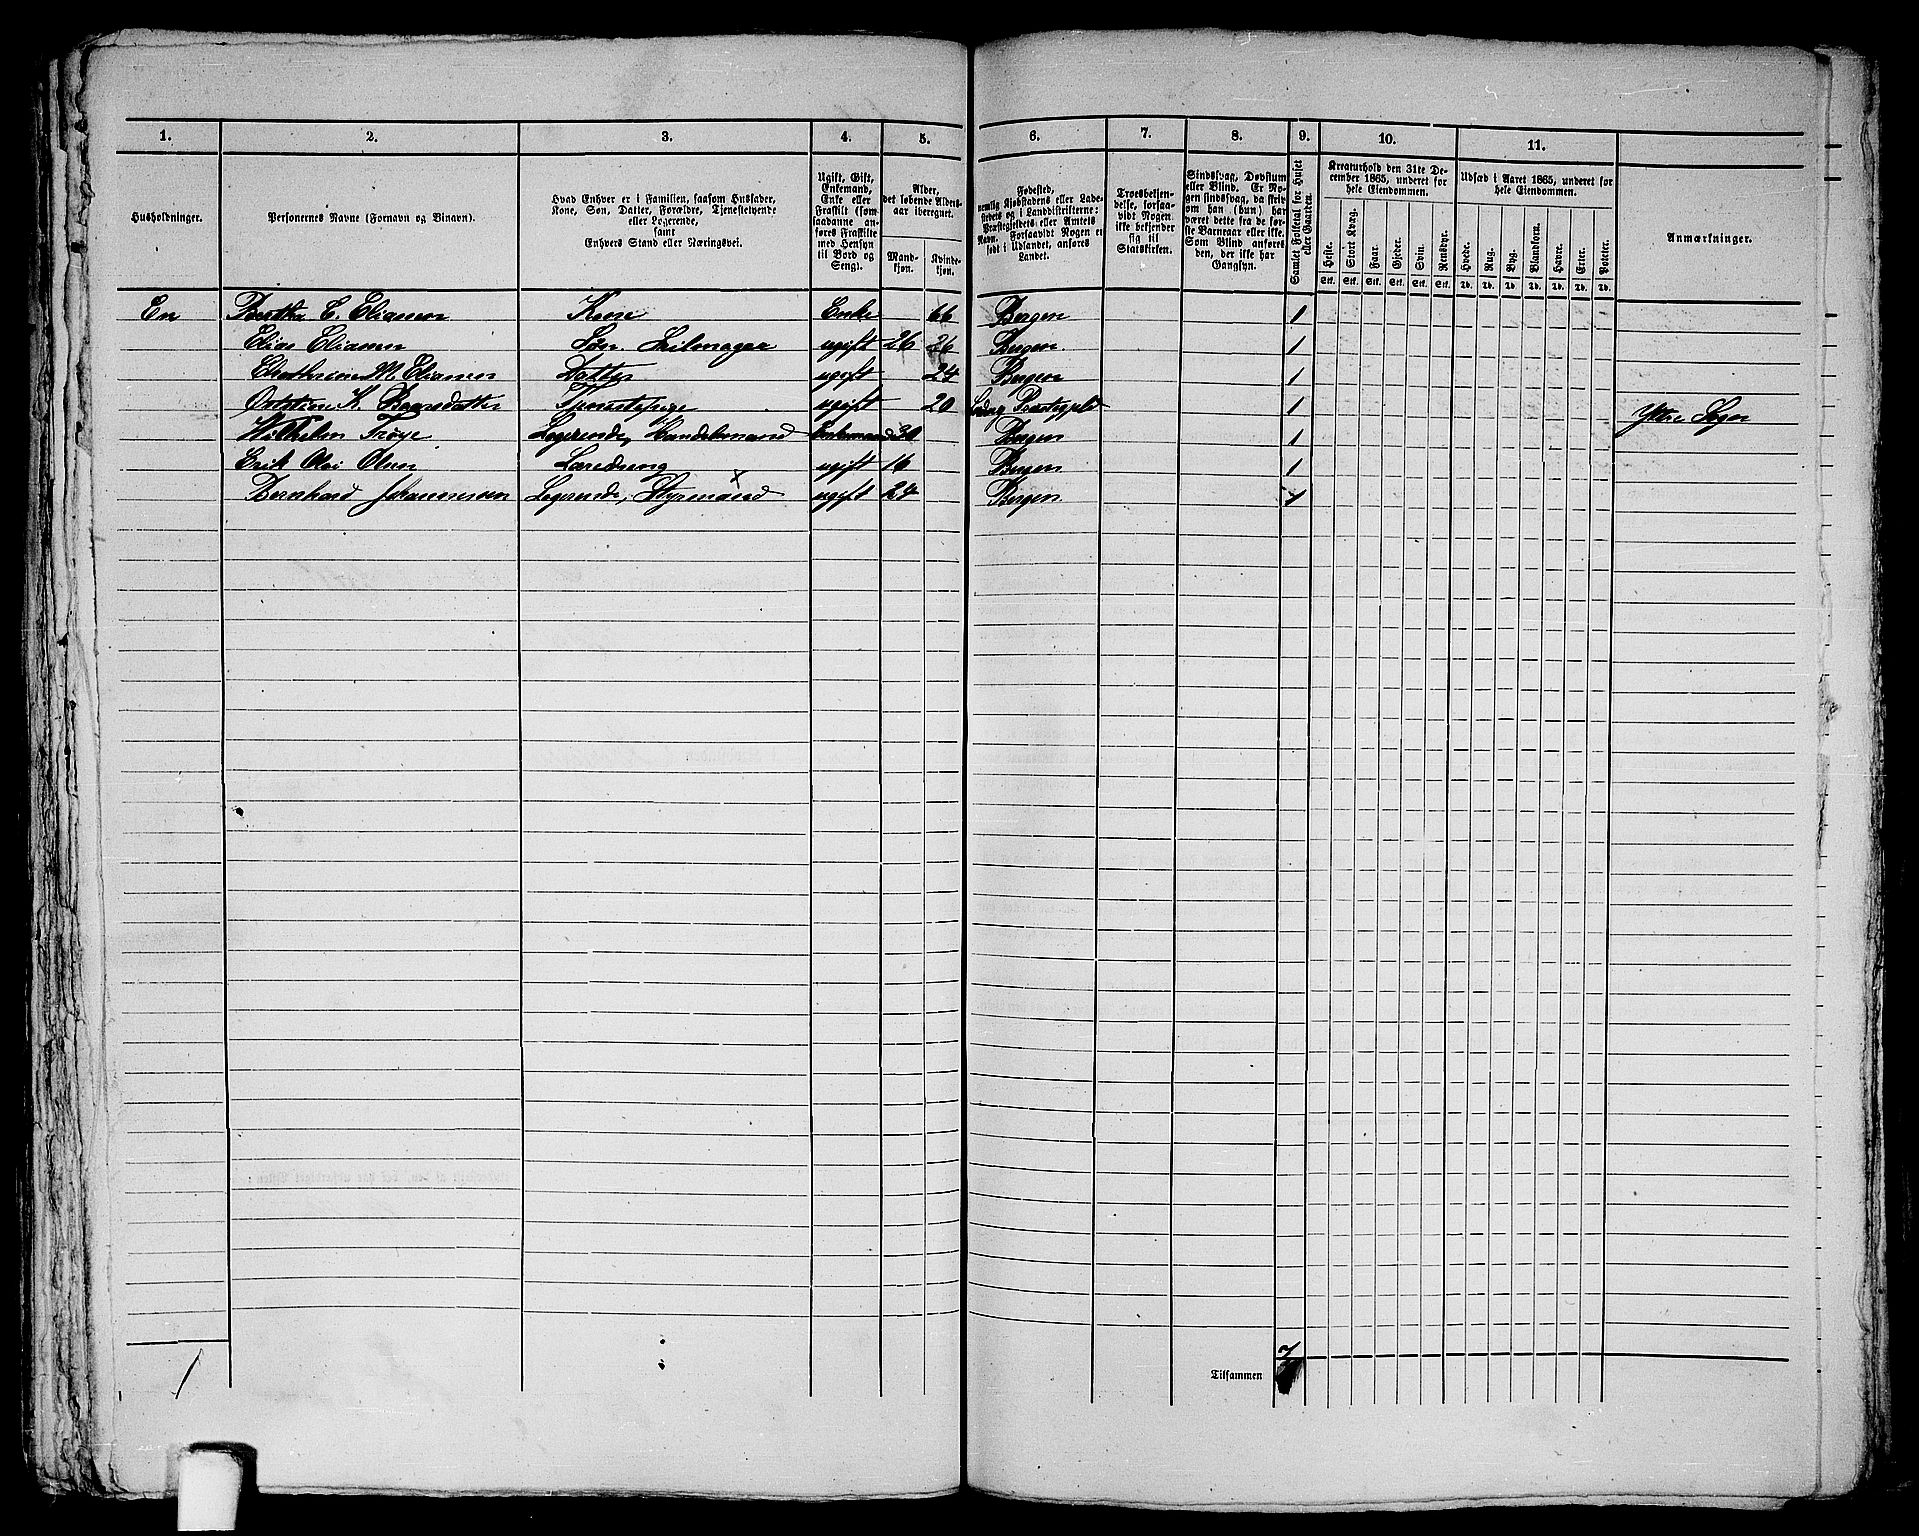 1. 2. 3. 4. 5. 6. 7. 8. 9. 10. 11.
Husholdninger.
Personernes Navne (Fornavn og Binavn).
Hvad Enhver er i Familien, saasom Husfader,
Kone, Søn, Datter, Forældre, Tjenestetyende
eller Logerende,
samt
Enhvers Stand eller Næringsvei.
Ugift, Gift,
Enkemand,
Enke eller
Fraskilt (som
saadanne an-
føres Fraskilte
med Hensyn
til Bord og
Seng).
Alder,
det løbende Alders-
aar iberegnet.
Mand-
kjøn.
Kvinde-
kjøn.
Fødested,
nemlig Kjøbstadens eller Lade-
stedets og i Landdistrikterne:
Præstegjeldets eller Amtets
Navn. Forsaavidt Nogen er
født i Udlandet, anføres
Landet.
Troesbekjen-
delse, forsaa-
vidt Nogen
ikke bekjender
sig til
Statskirken.
Sindssvag, Døvstum
eller Blind. Er No-
gen sindssvag, da skriv
om han (hun) har
været dette fra de før-
ste Barneaar eller ikke.
Som Blind anføres
den, der ikke har
Gangsyn.
Samlet Folketal for Huset
eller Gaarden.
Kreaturhold den 31te De-
cember 1865, underet for
hele Eiendommen.
Heste. Stort Kvæg. Faar. Gjeder. Svin. Rensdyr.
Stk. Stk. Stk. Stk. Stk. Stk.
Udsæd i Aaret 1865, underet for
hele Eiendommen.
Hvede. Rug. Byg. Blandkorn. Havre. Erter. Poteter.
Td. Td. Td. Td. Td. Td. Td.
Anmærkninger.
En Berthe E. Eliassen Kone Enke 66 Bergen 1
Elias Eliassen Søn. Seilmager ugift 26 26 Bergen 1
M. Eliassen Datter ugift 24 Bergen 1
K. Baarsdatter Tjenestepige ugift 20 Præstegjeld 1 Yttre Sogn
Wilhelm Trøye Logerende, Handelsmand Enkemand 30 Bergen 1
Erik Olsen Læredreng ugift 16 Bergen 1
Bernhard Johannessen Logerende, Styrmand x ugift 24 Bergen 1
1
7
Tilsammen